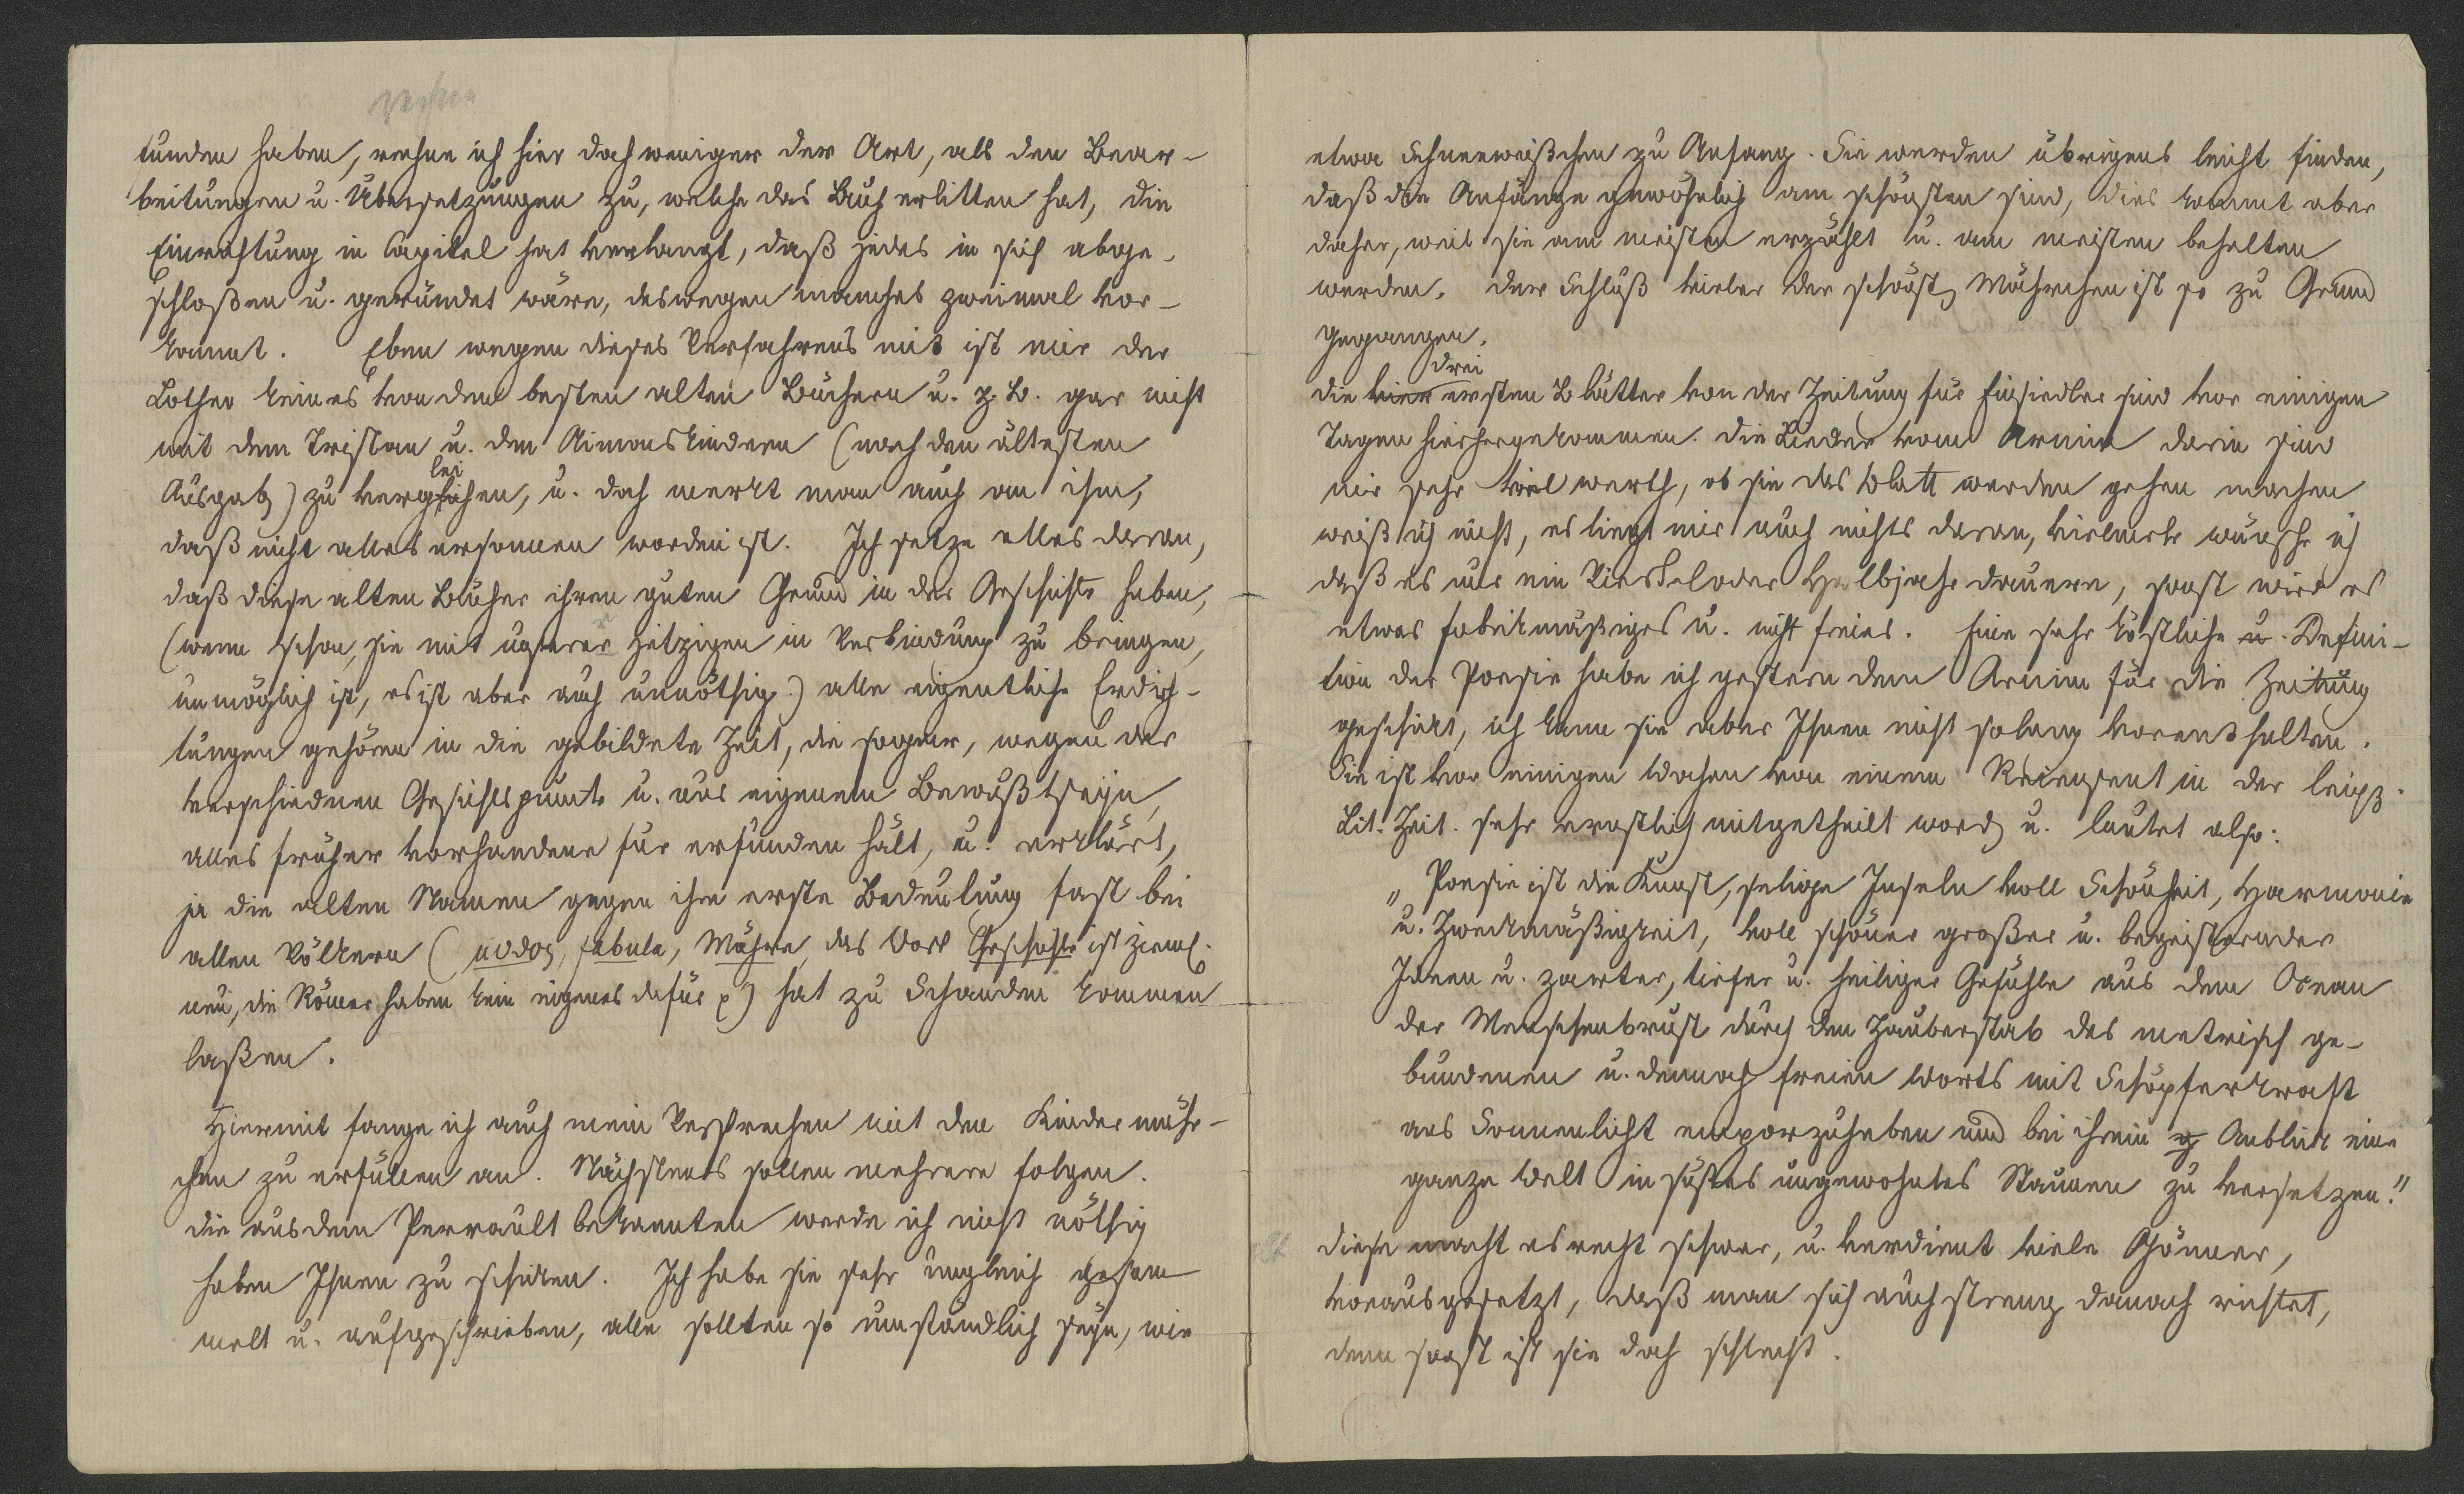 funden haben, rechne ich hier doch weniger der Art, als den Bear-
beitungen u. Übersetzungen zu, welche das Buch erlitten hat, die
Einrichtung in Capitel hat verlangt, daß jedes in sich abge-
schloßen u. geründet wäre, deswegen manches zweimal vor-
kommt. Eben wegen dieses Verfahrens mit ist mir der
Lother keines von den besten alten Büchern u. z. B. gar nicht
mit dem Tristan u. den Aimonskindern (nach den ältesten
Ausgab.) zu vergleichen, u. doch merkt man auch an ihm,
daß nicht alles ersonnen worden ist. Ich setze alles daran,
daß diese alten Bücher ihren guten Grund in der Geschichte haben,
(wenn schon, sie mit unserer jetzigen in Verbindung zu bringen,
unmöglich ist, es ist aber auch unnöthig.) alle eigentliche Erdich-
tungen gehören in die gebildete Zeit, die sogar, wegen der
verschiednen Gesichtspunkte u. aus eigenem Bewußtseyn,
alles früher vorhandene für erfunden hält, u. erklärt,
ja die alten Namen gegen ihre erste Bedeutung fast bei
allen Völkern (μυθος, fabula, Mähre, das Wort Geschichte ist zieml.
neu, die Römer haben kein eigenes dafür p) hat zu Schanden kommen
laßen.
Hiermit fange ich auch mein Versprechen mit den Kindermähr-
chen zu erfüllen an. Nächstens sollen mehrere folgen.
die aus dem Perrault bekannten werde ich nicht nöthig
haben Ihnen zu schicken. Ich habe sie sehr ungleich gesam
melt u. aufgeschrieben, alle sollten so umständlich seyn, wie
etwa Schneeweißchen zu Anfang. Sie werden übrigens leicht finden,
daß die Anfänge gewöhnlich am schönsten sind, dies kommt aber
daher, weil sie am meisten erzählt u. am meisten behalten
werden. der Schluß vieler der schönst. Mährchen ist so zu Grund
gegangen.
drei
die vier ersten Blätter von der Zeitung für Einsiedler sind vor einigen
Tagen hierhergekommen. die Lieder vom Arnim darin sind
mir sehr viel werth, ob sie das Blatt werden gehen machen
weiß ich nicht, es liegt mir auch nichts daran, vielmehr wünsche ich
daß es nur ein Viertel oder Halbjahr dauere, sonst wird es
etwas fabrikmäßiges u. nicht freies. Eine sehr köstliche u. Defini-
tion der Poesie habe ich gestern dem Arnim für die Zeitung
geschickt, ich kann sie aber Ihnen nicht solang vorenthalten.
Sie ist vor einigen Wochen von einem Recensent in der leipz.
Lit. Zeit. sehr ernstlich mitgetheilt word. u. lautet also:
„Poesie ist die Kunst, selige Inseln voll Schönheit, Harmonie
u. Zweckmäßigkeit, voll schöner großer u. begeisternder
Ideen u. zarter, tiefer u. heiliger Gefühle aus dem Ocean
der Menschenbrust durch den Zauberstab des metrisch ge-
bundenen u. dennoch freien Worts mit Schöpferkraft
ans Sonnenlicht emporzuheben und bei ihrem Anblick eine
ganze Welt in süßes ungewohntes Staunen zu versetzen."
diese macht es recht schwer, u. verdient viele Gönner,
vorausgesetzt, daß man sich auch streng danach richtet,
denn sonst ist sie doch schlecht.